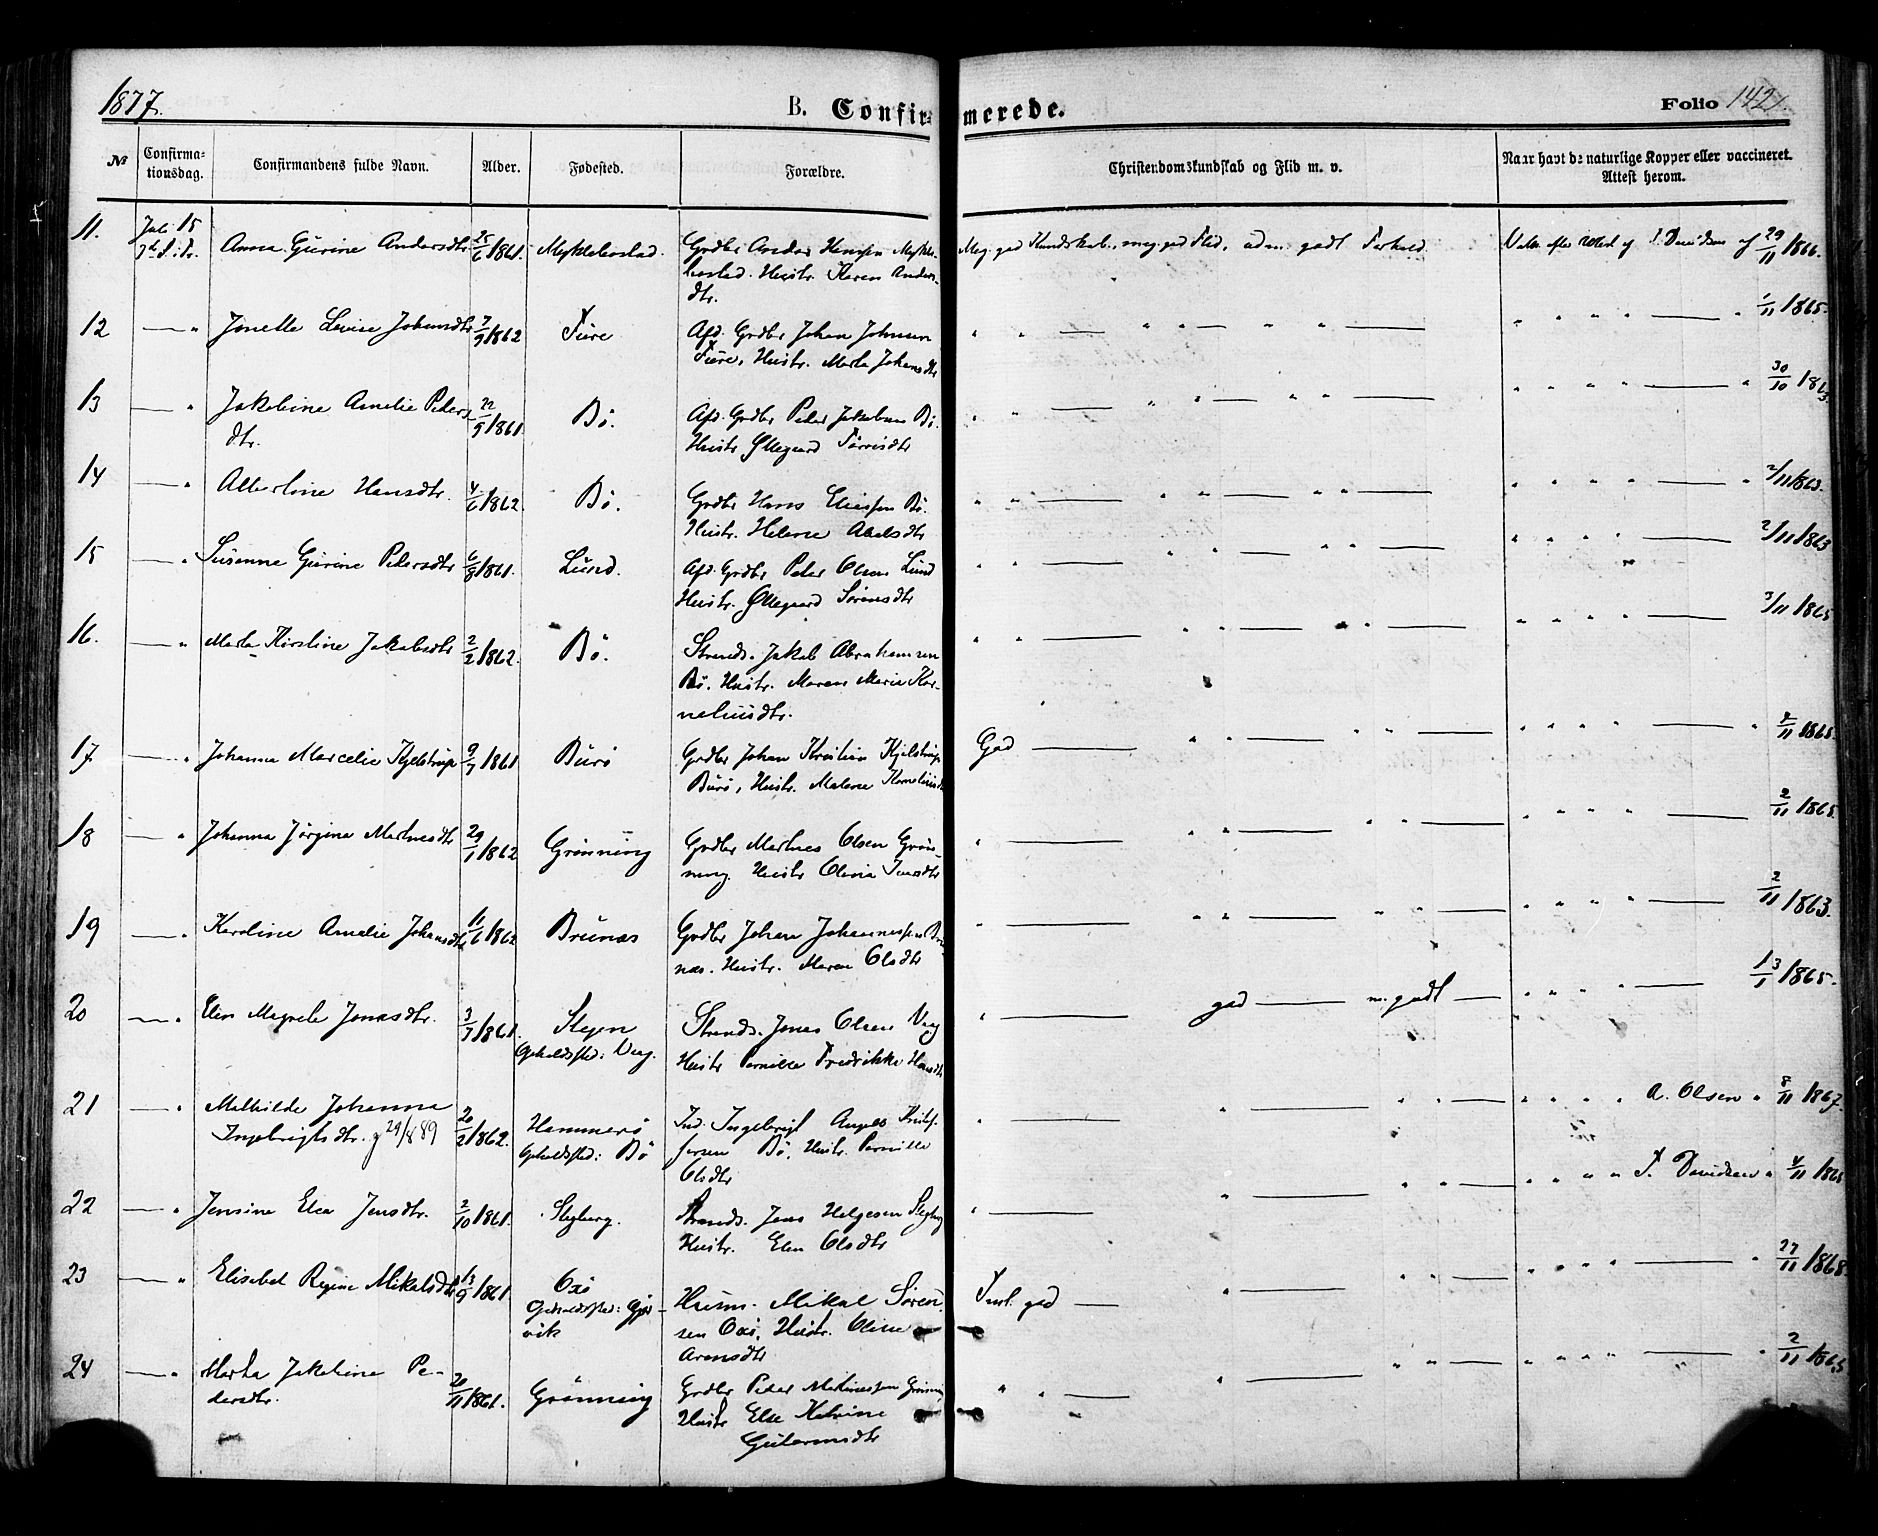 1877.
B. Confirmerede.
Folio 142.
№
Confirmationsdag.
Confirmandens fulde Navn.
Alder.
Fødested.
Forældre.
Christendomskundskab og Flid m. v.
Naar havt de naturlige Kopper eller vaccineret. Attest herom.
11. Juli 15 Anna Gurine Andersdtr 25/6 1861. Myklebostad. Grdbr Anders Hansen Mykle-
bostad. Hustr. Karen Anders-
dtr.
Meg. god Kundskab, meg. god Flid, udm. godt Forhold. Vakc. efter Attest af J. Davidsen af 29/11 1866.
12 — " Jonette Lovise Johansdtr 7/9 1862 Fure Afd. Grdbr Johan Johnsen
Fure, Hustr. Marta Johansdtr
" " — " " — " " — " " " " — " 1/11 1865.
13 — " Jakobine Amelie Peders-
dtr. 22/9 1861. Bø. Afd. Grdbr Peder Jakobsen Bø.
Hustr Ollegaard
" " — " " — " " — " " " " — " 30/10 1863.
14 — " Albertine Hansdtr. 4/6 1862. Bø. Grdbr Hans Bø.
Hustr. Helene Abelsdtr
" " — " " — " " — " " " " — " 2/11 1863.
15 — " Susanne Gurine Pedersdtr 6/8 1861. Lund. Afd. Grdbr Peder Olsen Lund
Hustr. Ollegaard Sørensdtr
" " — " " — " " — " " " " — " 2/11 1863
16. — " Marta Kirstine Jakobsdtr 2/2 1862. Bø. Strands. Jakob Abrahamsen
Bø. Hustr. Maren Maria Kor-
neliusdtr.
" " — " " — " " — " " " " — 3/11 1865
17 — " Johanna Marcelie Kjelstrup 9/7 1861 Burø Grdbr Johan Kristian Kjelstrup
Burø, Hustr. Malene Korneliusdtr
God — " " — " " — " " " " — " 2/11 1865.
18 — " Johanna Jørgine Martnesdtr 29/1 1862 Grønning Grdbr Martnes Olsen Grøn-
ning. Hustr Olivia
" — " " — " " — " " " " — 2/11 1865.
19 — " Karoline Amalie Johansdtr 11/6 1862 Brunes Grdbr Johan Johannessen Bru-
nes. Hustr. Maren Olsdtr
" — " " — " " — " " " " — 2/11 1863.
20 — " Elen Magrete Jonasdtr. 3/7 1861. Stegen
Opholdssted: Vaag.
Strands. Jonas Olsen Vaag
Hustr Pernille Fredrikke Hansdtr
" — god — m. godt — " " " " — 13/1 1865.
21 — " Mathilde Johanna
Ingebrigtsdtr. 29/8 89 20/2 1862. Hammerø
Opholdssted: Bø
Ind. Ingebrigt Kristof-
fersen Bø, Hustr. Pernille
Olsdtr
" — " — " " — " " " " A. Olsen " 8/11 1867.
22 — " Jensine Elea Jensdtr. 2/10 1861. Skyberg. Strands. Jens Helgesen
Hustr. Elen Olsdtr
" — " — " " — " " " " J. Davidsen " 4/11 1865
23 — " Elisabet Regine Mikalsdtr 13/9 1861. Oxø
Opholdssted: Gjør-
vik
Husm. Mikal Søren-
sen Oxø, Hustr. Oline
Arensdtr
Temml. god — " — " " — " " " " — " 27/11 1868.
24 — " Marta Jakobine Pe-
dersdtr. 20/11 1861. Grønning Grdbr Peder Martinussen Grønning
Hustr Else Katrine
" " — " — " " — " " " " — " 2/11 1865